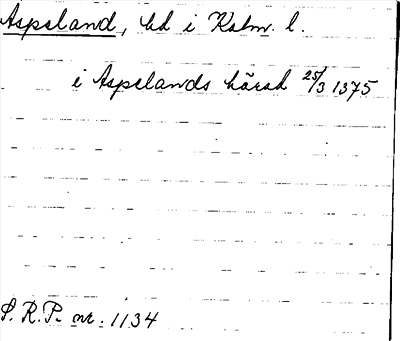 Aspeland, hd i Kalm. l.
i Aspelands härad 25/3 1375
S.R.P. nr. 1134